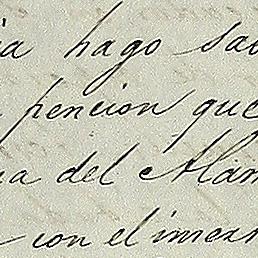 ia hago sa
pencion que
a del Alam
con el